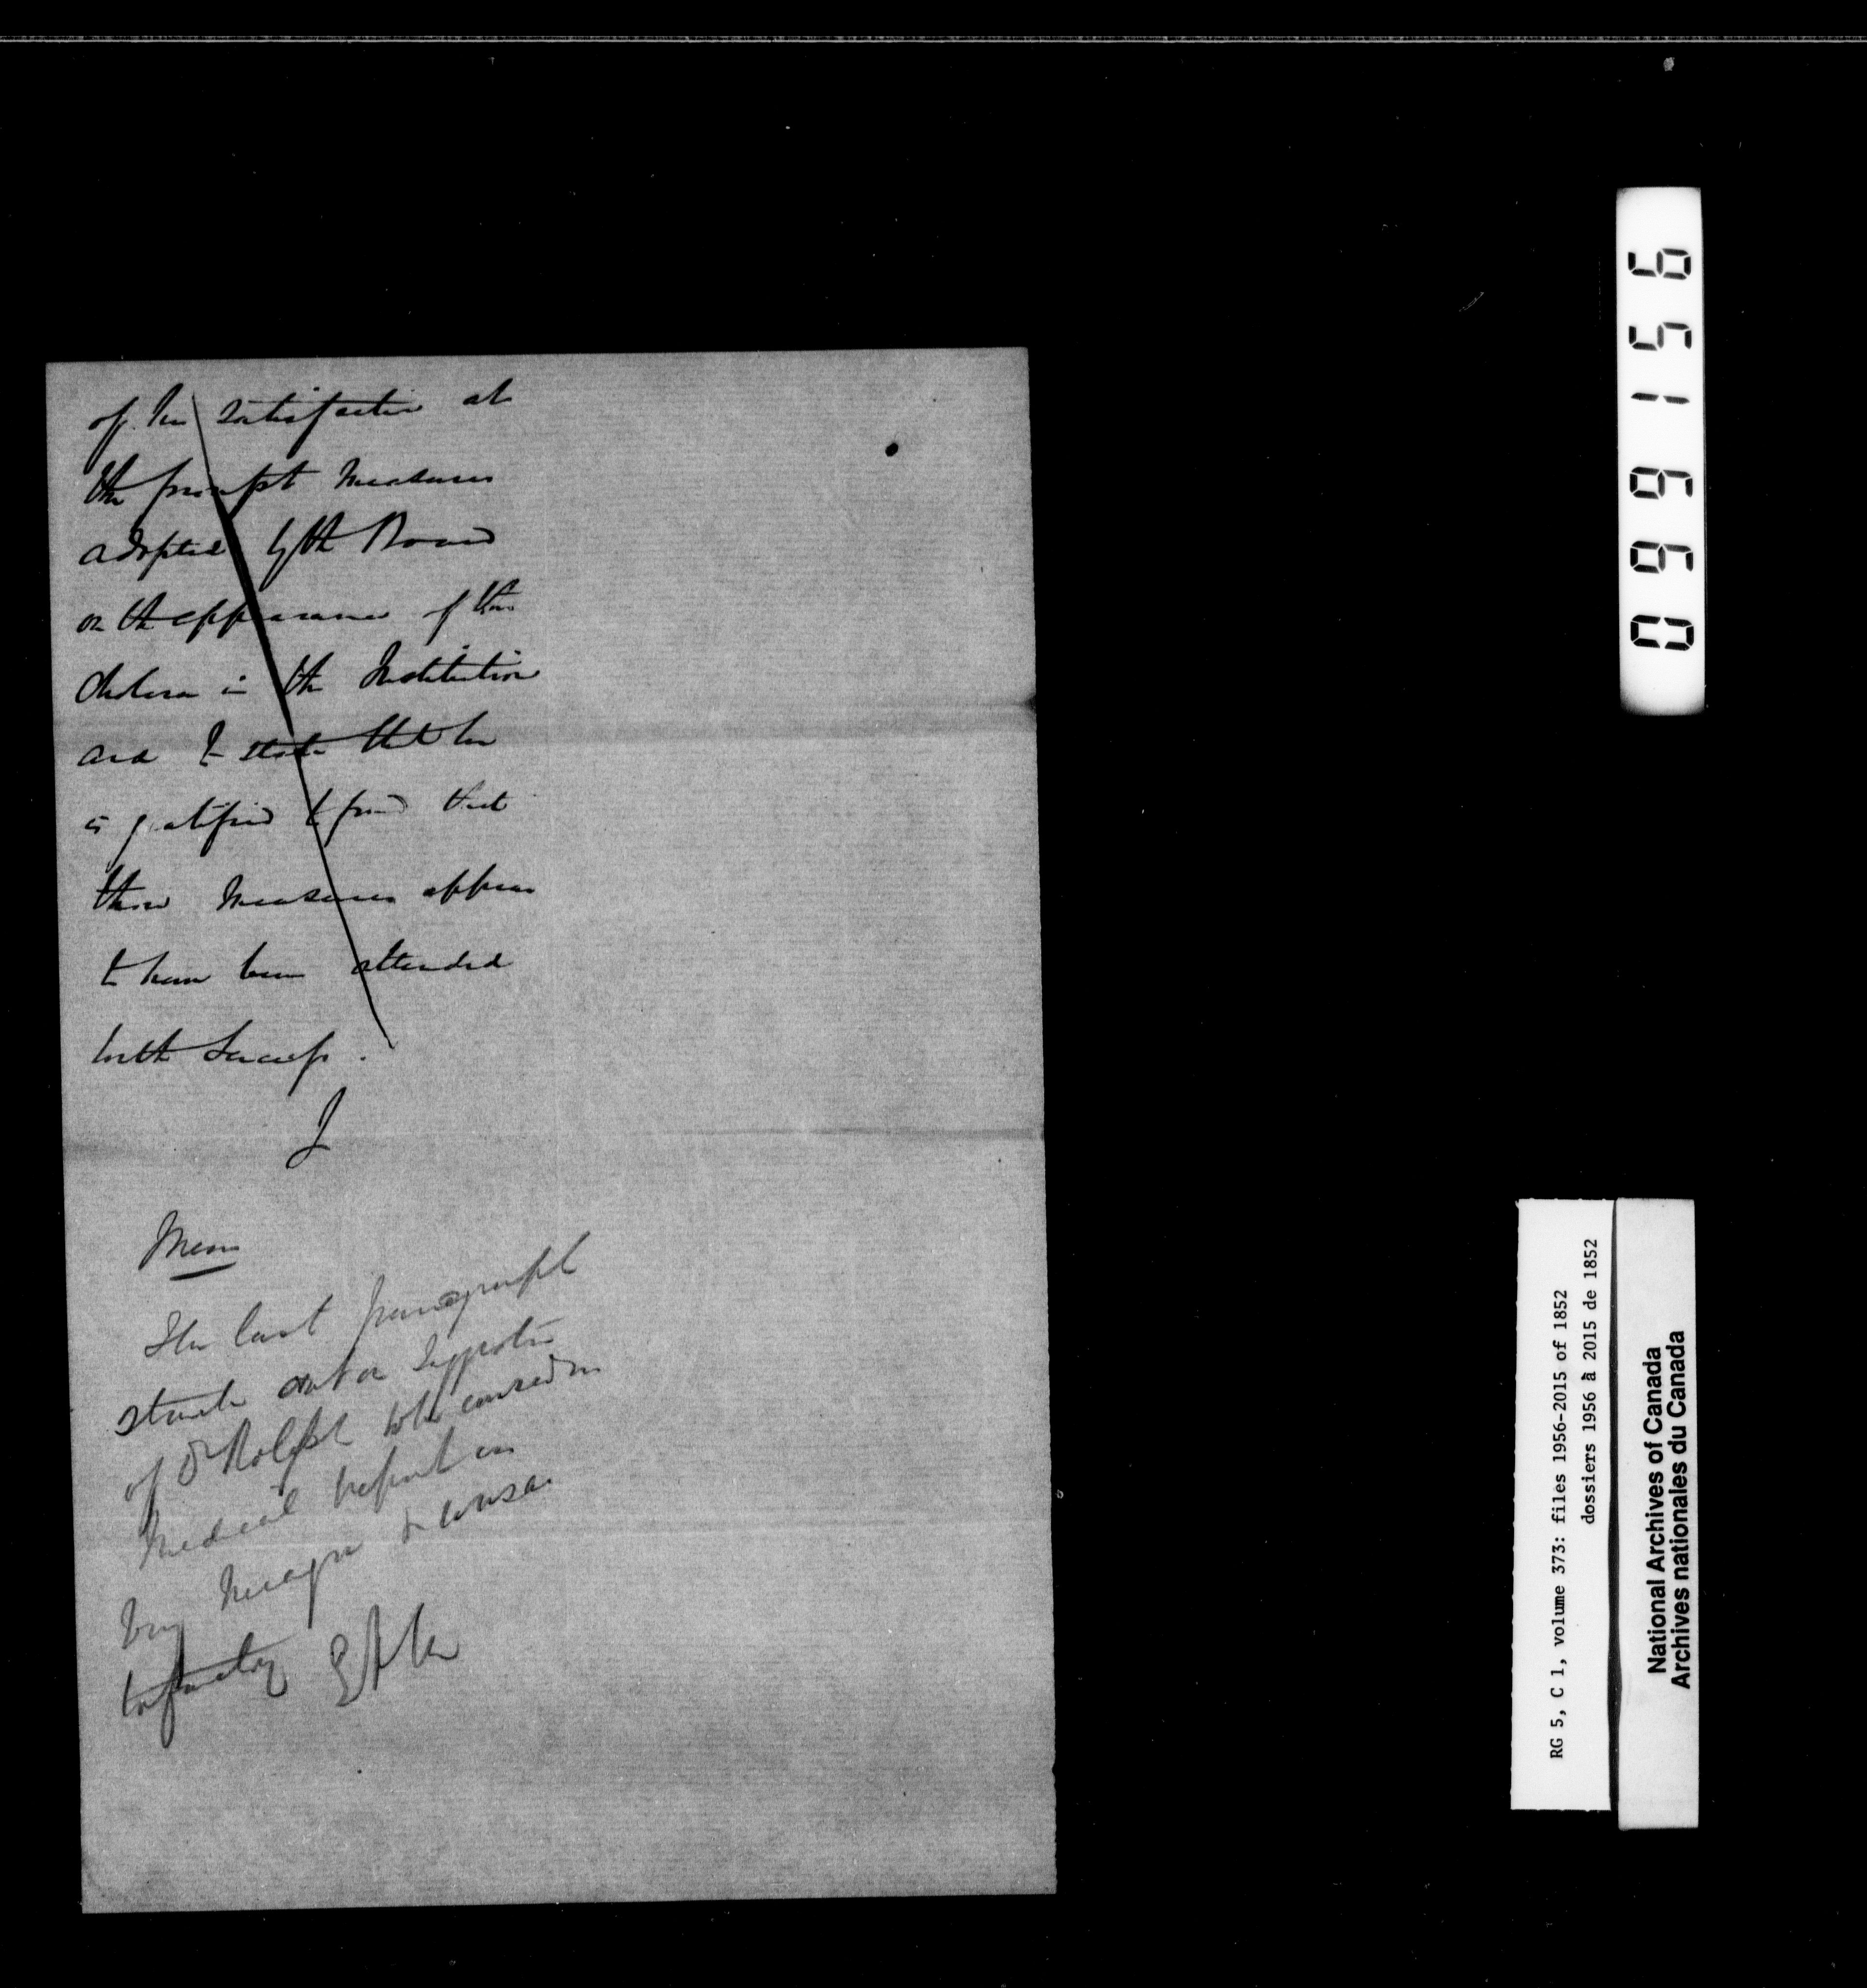 of his satisfaction at
the prompt measures
adopted by the Board
on the appearance of the
Cholera in the Institution
and to state that he
is gratified to find that
those measures appear
to have been attended
with success.
Mem
The last paragraph
struck out on suggestion
of Dr Rolph who considers
Medical report as
very meagre &
099156
RG 5, C 1, volume 373: files 1956-2015 of 1852
dossiers 1956 à 2015 de 1852
National Archives of Canada
Archives nationales du Canada